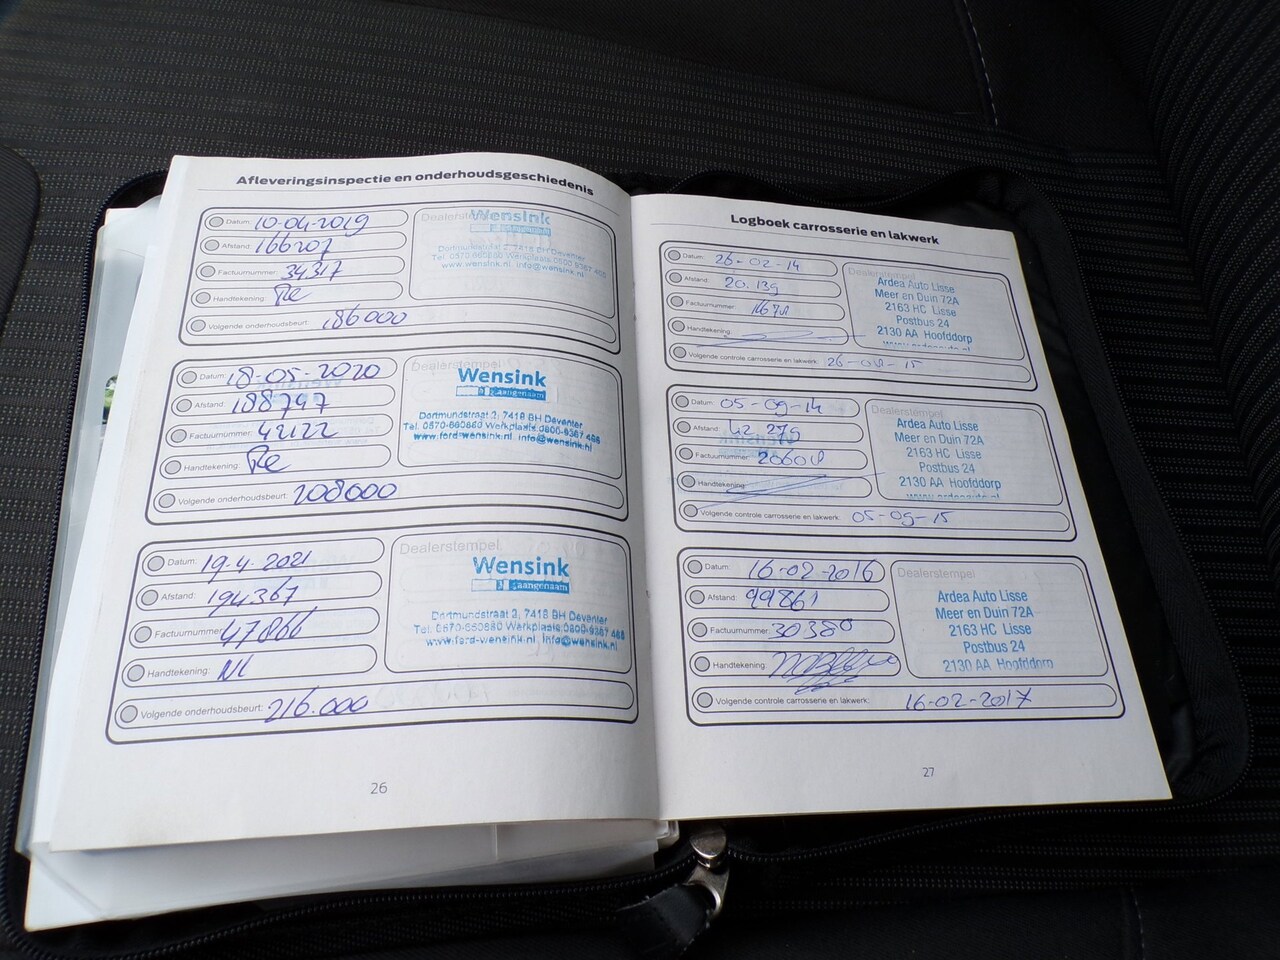 Afleveringsinspectie en onderhoudsgeschiedenis
Datum: 10-04-2019
Afstand: 166207
Factuurnummer: 34317
Handtekening:
Volgende onderhoudsbeurt: 186000
Wensink
aangenaam
Dortmundstraat 2, 7418 BH Deventer
Tel. 0570-660660 Werkplaats 0800-9367 466
www.wensink.nl info@wensink.nl
Datum: 18-05-2020
Afstand: 188797
Factuurnummer: 42122
Handtekening:
Volgende onderhoudsbeurt: 208000
Dealerstempel
Wensink
aangenaam
Dortmundstraat 2, 7418 BH Deventer
Tel. 0570-660660 Werkplaats 0800-9367 466
www.ford-wensink.nl info@wensink.nl
Datum: 19-4-2021
Afstand: 194367
Factuurnummer: 47866
Handtekening: NL
Volgende onderhoudsbeurt: 216.000
Dealerstempel
Wensink
aangenaam
Dortmundstraat 2, 7418 BH Deventer
Tel. 0570-660660 Werkplaats 0800-9367 466
www.ford-wensink.nl info@wensink.nl
26
Logboek carrosserie en lakwerk
Datum: 26-02-14
Afstand: 20.139
Factuurnummer:
Handtekening:
Volgende controle carrosserie en lakwerk:
Dealerstempel
Ardea Auto Lisse
Meer en Duin 72A
2163 HC Lisse
Postbus 24
2130 AA Hoofddorp
Datum: 05-09-14
Afstand: 42.279
Factuurnummer:
Handtekening:
Volgende controle carrosserie en lakwerk: 05-09-15
Dealerstempel
Ardea Auto Lisse
Meer en Duin 72A
2163 HC Lisse
Postbus 24
2130 AA Hoofddorp
Datum: 16-02-2016
Afstand: 99861
Factuurnummer: 30380
Handtekening:
Volgende controle carrosserie en lakwerk: 16-02-2017
Dealerstempel
Ardea Auto Lisse
Meer en Duin 72A
2163 HC Lisse
Postbus 24
2130 AA Hoofddorp
27